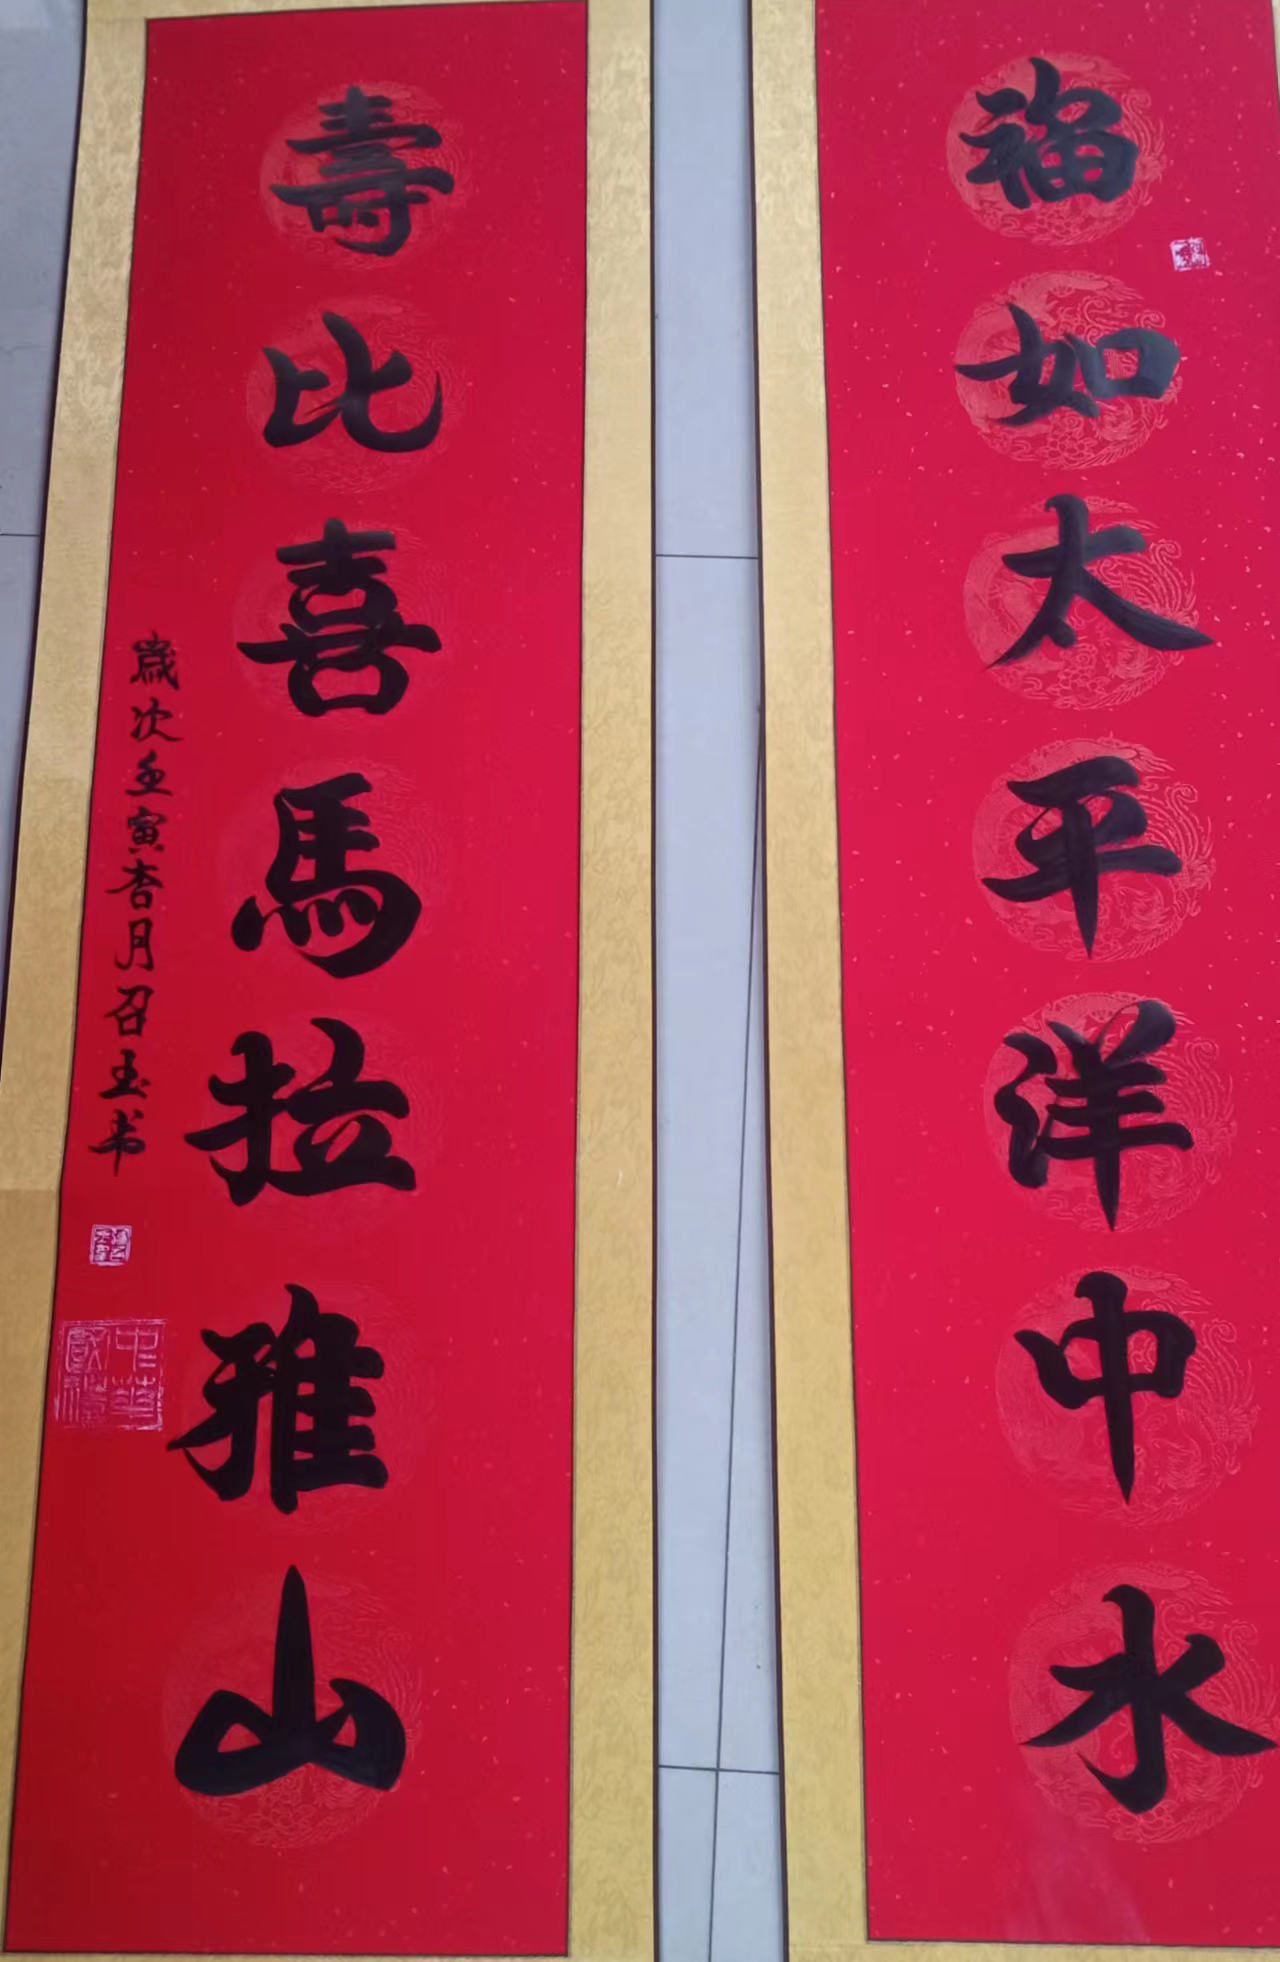 福如太平洋中水
壽比喜馬拉雅山
歲次壬寅杏月召玉书